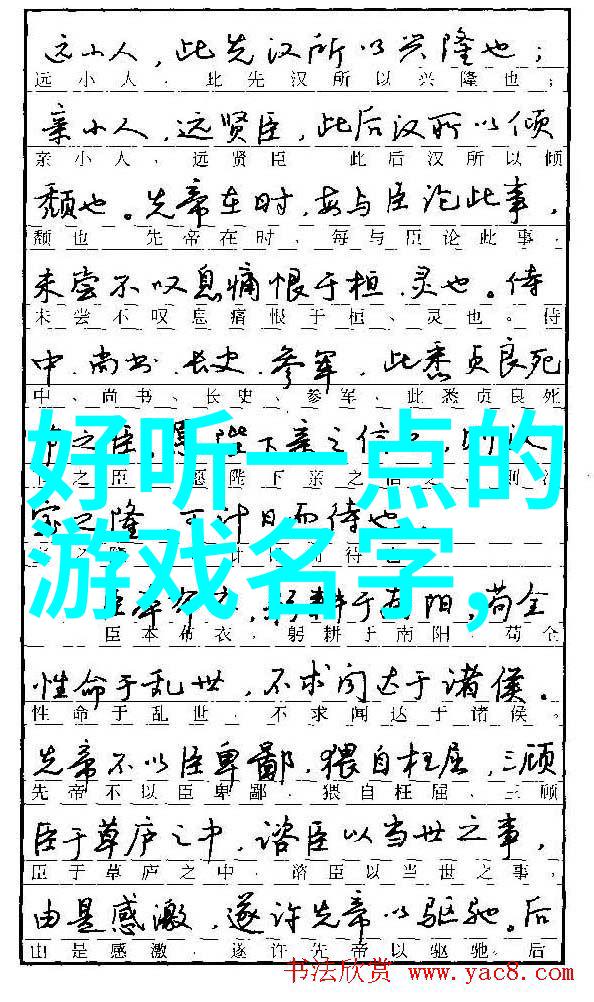 远小人，此先汉所以兴隆也；
远小人，此先汉所以兴隆也；
亲小人，远贤臣，此后汉所以倾
亲小人、远贤臣 此后汉所以倾
颓也。先帝在时，每与臣论此事，
颓也 先帝在时，每与臣论此事，
未尝不叹息痛恨于桓、灵也。侍
未尝不叹息痛恨于桓、灵也。侍
中、尚书、长史、参军，此悉贞良死
中、尚书、长史、参军、此悉贞良死
之臣，愿陛下亲之信
之臣 愿陛下亲之信
好听一点的
之隆 可计日而待也。
游戏名字，
臣本布衣，躬耕于南阳，苟全
臣本布衣，躬耕于南阳，苟全
性命于乱世，不求闻达于诸侯。
性命于乱世，不求闻达于诸侯。
先帝不以臣卑鄙，猥自枉屈，三顾
先帝不以臣卑鄙，猥自枉屈、三顾
臣于草庐之中，谘臣以当世之事，
臣于草庐之中，谘臣以当世之事，
由是感激，遂许先帝以驱驰。后
由是感激，遂许先帝以驱驰。后
书法欣赏 www.yac8.com